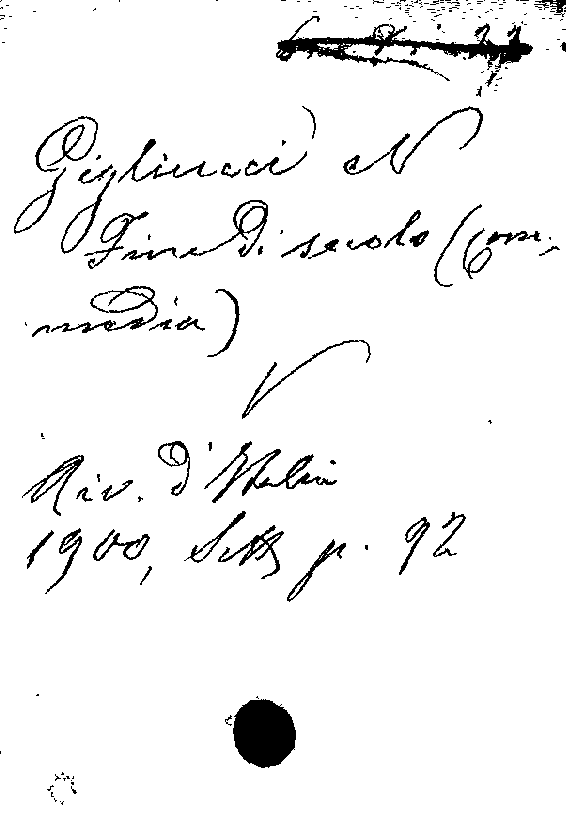 Gigliucci N
Fine di secolo (Com-
media)
V
Riv. d'Italia
1900, Sett p. 92